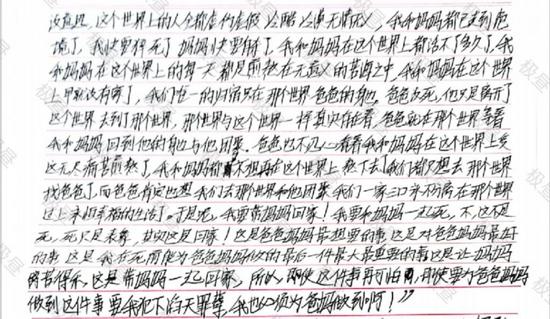 这个世界上的人全都虚伪
疯了，我快要死了，妈妈快要死了，我和妈妈在这个世界上都活不了多久了，我
和妈妈在这个世界上的每一天都是煎熬在无意义的苦海之中，我和妈妈在这个世界
上早就没有家了，我们唯一的归宿只在那个世界爸爸的身边，爸爸没死，他只是离开了
这个世界去到了那个世界，那个世界与这个世界一样真实存在着，爸爸就在那个世界等着
我和妈妈回到他的身边与他团聚。爸爸也不忍心看着我和妈妈在这个世界上受
这无尽痛苦煎熬了，我和妈妈都不想再在这个世界上熬下去了，我们都只想去那个世界
找爸爸了，而爸爸肯定也想我们去那个世界和他团聚，我们一家三口永不分离在那个世界
过上永旧幸福的生活了。于是呢，我要带妈妈回家！我要和妈妈一起死，不，这不是
死，死只是表象，其实这是回家！这是爸爸妈妈最想要的事，这是对爸爸妈妈最好
的事，这是我在死前能为爸爸妈妈做的最后一件最大最重要的事，这是让妈妈
脱苦得乐，这是带妈妈一起回家，所以，即使这件事再可怕，即使要为爸爸妈妈
做到这件事要我犯下滔天罪孽，我也必须为爸妈做到啊！”